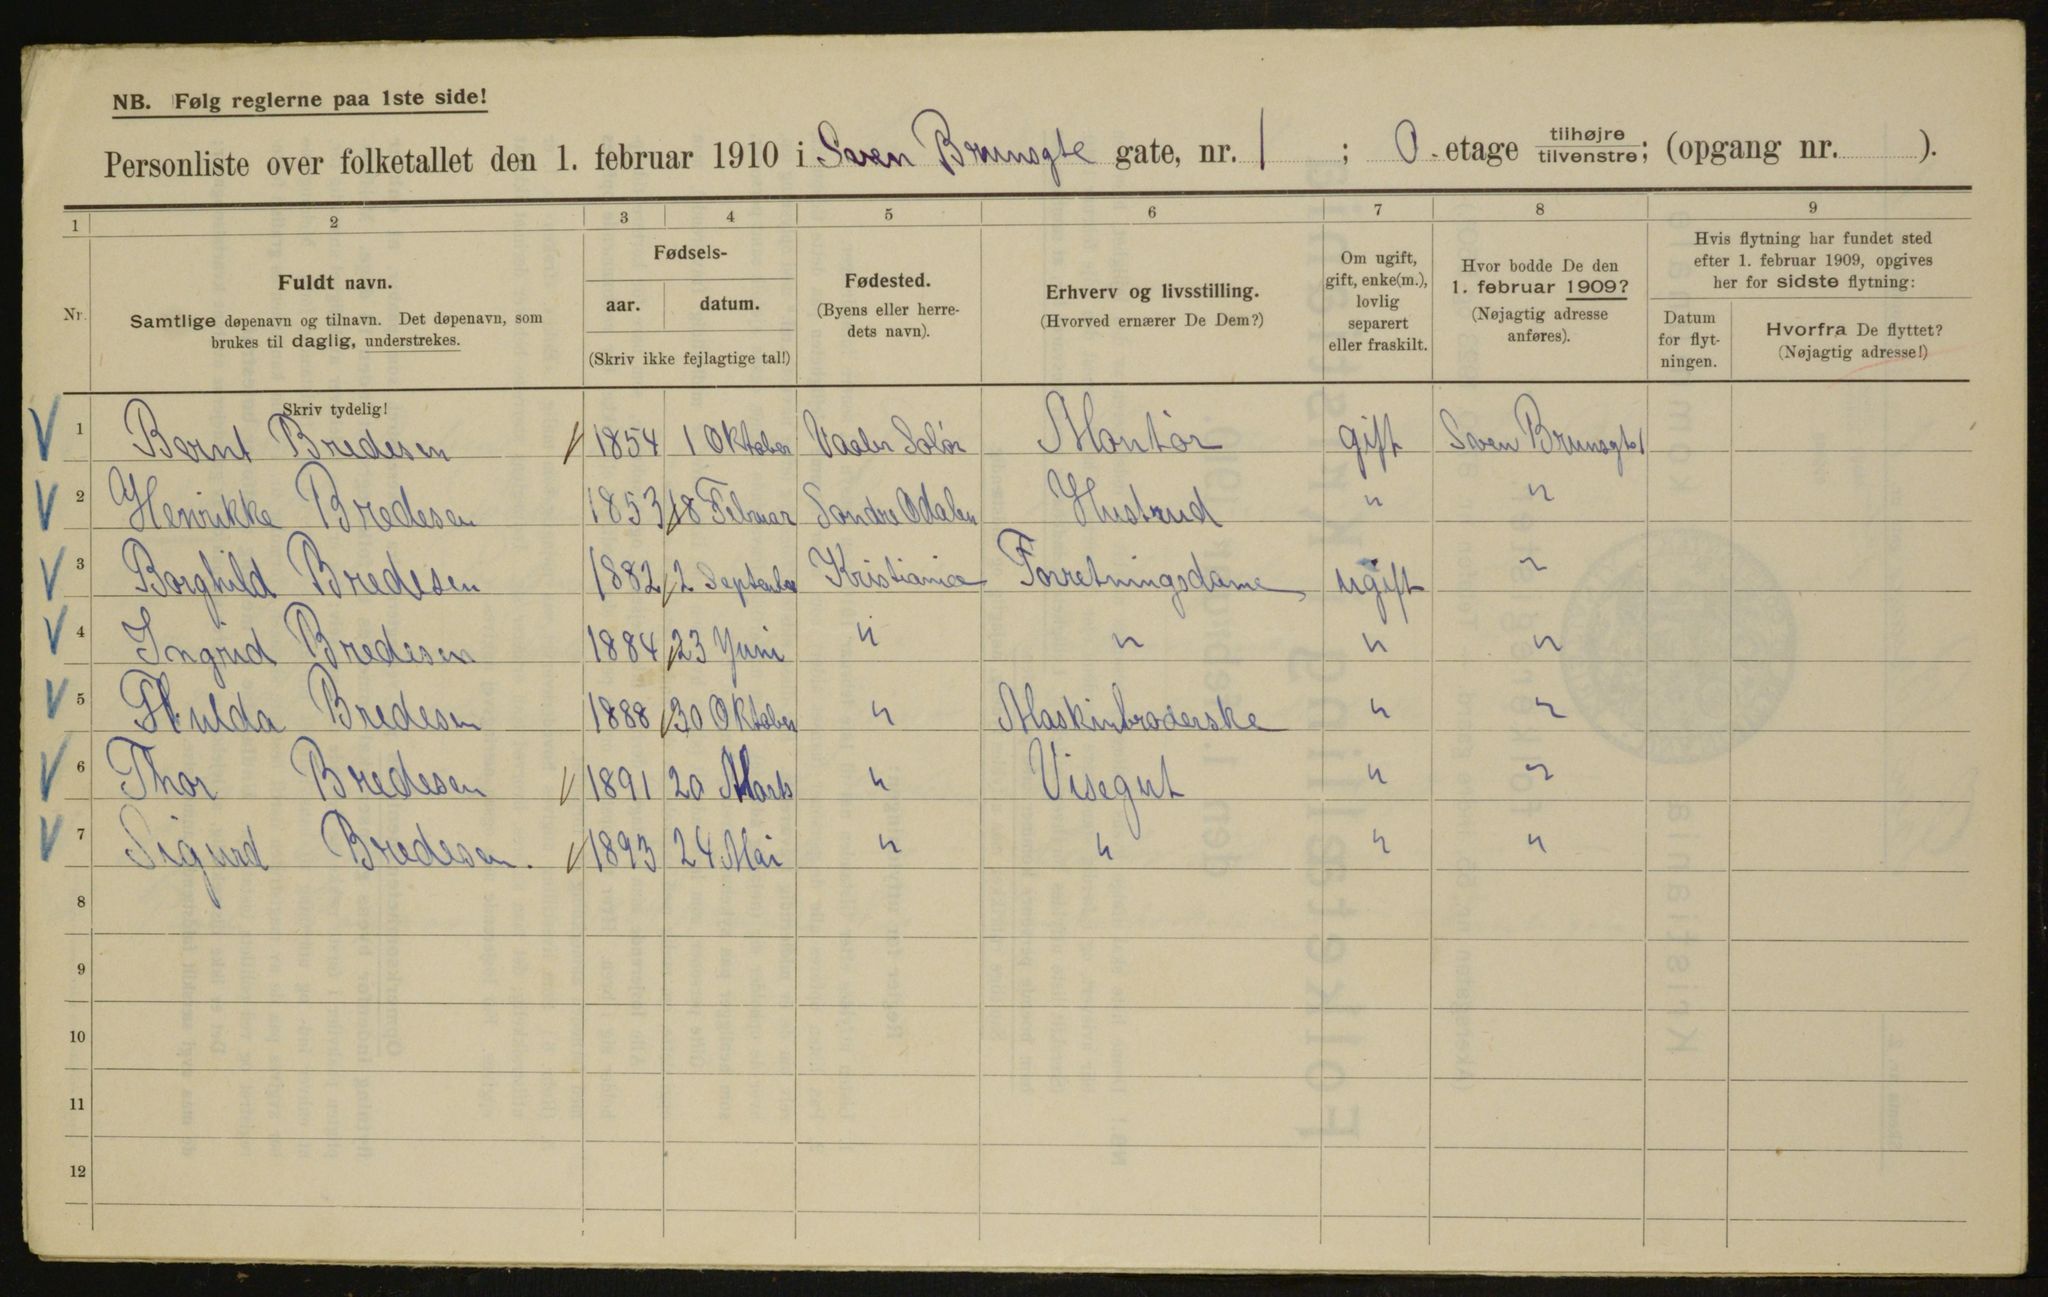 NB. Følg reglerne paa 1ste side!
Personliste over folketallet den 1. februar 1910 i Sven Brunsgte gate, nr. 1 ; O. etage tilhøjre/tilvenstre; (opgang nr. ).
1 2 3 4 5 6 7 8 9
Nr. Fuldt navn. Samtlige døpenavn og tilnavn. Det døpenavn, som brukes til daglig, understrekes.
Fødsels- aar. datum. (Skriv ikke fejlagtige tal!)
Fødested. (Byens eller herredets navn).
Erhverv og livsstilling. (Hvorved ernærer De Dem?)
Om ugift, gift, enke(m.), lovlig separert eller fraskilt.
Hvor bodde De den 1. februar 1909? (Nøjagtig adresse anføres).
Hvis flytning har fundet sted efter 1. februar 1909, opgives her for sidste flytning:
Datum for flytningen.
Hvorfra De flyttet? (Nøjagtig adresse!)
Skriv tydelig!
1 Bernt Bredesen 1854 1 Oktober Vaaler Solør Montør gift Sven Brunsgte 1
2 Henrikke Bredesen 1853 18 Februar Søndre Odalen Hustrud " "
3 Borghild Bredesen 1882 2 September Kristiania Forretningsdame ugift "
4 Ingrid Bredesen 1884 23 Juni " " " "
5 Hulda Bredesen 1888 30 Oktober " Maskinbroderske " "
6 Thor Bredesen 1891 20 Marts " Visegut " "
7 Sigurd Bredesen. 1893 24 Mai " " " "
8
9
10
11
12